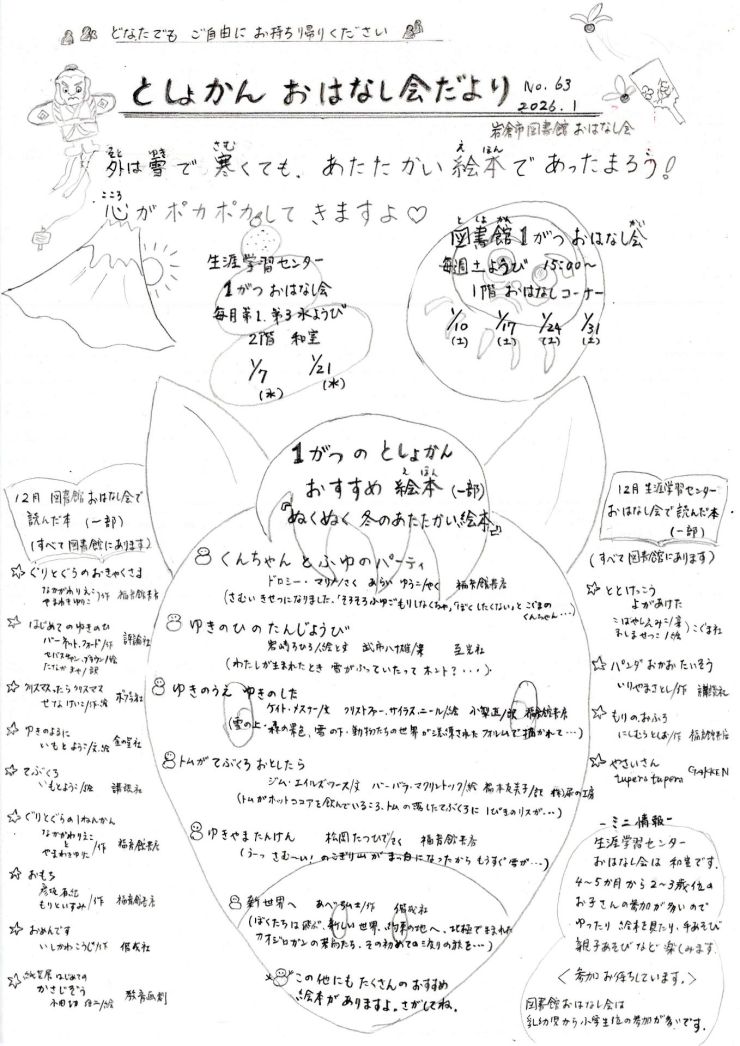 どなたでも ご自由に お持ち帰りください
としょかん おはなし会だより No.63
2026.1
岩倉市図書館 おはなし会
外は雪で寒くても、あたたかい絵本であったまろう!
心がポカポカしてきますよ♡
生涯学習センター
1がつ おはなし会
毎月第1.第3水ようび
2階 和室
1/7 (水) 1/21 (水)
図書館1がつ おはなし会
毎週土ようび 15:00〜
1階 おはなしコーナー
1/10 (土) 1/17 (土) 1/24 (土) 1/31 (土)
1がつ の としょかん
おすすめ 絵本(一部)
『ぬくぬく 冬のあたたかい絵本』
くんちゃんとふゆのパーティ
ドロシー・マリノ/さく あらい ゆうこ/やく 福音館書店
(さむい きせつになりました、「そろそろふゆごもりしなくちゃ」「ぼくしたくない」と こぐまの くんちゃん…)
ゆきのひ の たんじょうび
岩崎ちひろ/絵と文 武市八十雄/案 至光社
(わたしが生まれたとき 雪がふっていたって ホント?・・・)
ゆきのうえ ゆきのした
ケイト・メスナー/文 クリストファー・サイラス・ニール/絵 小梨直/訳 福音館書店
(雪の上・森の景色、雪の下・動物たちの世界が洗練されたフォルムで描かれて…)
トムがてぶくろ おとしたら
ジム・エイルズワース/文 バーバラ・マクリントック/絵 福本友美子/訳 (株)犀の工房
(トムがホットココアを飲んでいるころ、トムの落したてぶくろに 1ぴきのリスが…)
ゆきやまたんけん 松岡たつひで/さく 福音館書店
(うーっ さむ〜い! のこぎり山が まっ白になったから もうすぐ雪が…)
新世界へ あべ弘士/作 偕成社
(ぼくたちは飛ぶ、新しい世界、約束の地へ、北極で生まれた
カオジロガンの若鳥たち、その初めての渡りの旅を…)
この他にもたくさんのおすすめ
絵本がありますよ。さがしてね。
12月 図書館 おはなし会で
読んだ本 (一部)
(すべて図書館にあります)
ぐりとぐらのおきゃくさま
なかがわりえこ
やまわきゆりこ/作 福音館書店
はじめてのゆきのひ
バーネット・フォード/作 評論社
セバスチャン・ブラウン/絵
たなか まや/訳
クリスマスったらクリスマス
せなけいこ/作・絵 ポプラ社
ゆきのように
いもとようこ/え,絵 金の星社
てぶくろ
いもとようこ/絵 講談社
ぐりとぐらの1ねんかん
なかがわりえこ
と/作 福音館書店
やまわきゆり
おもち
彦坂有紀
もりといずみ/作 福音館書店
おめんです
いしかわこうじ/作 偕成社
紙芝居 はじめての
かさじぞう
教育画劇
12月 生涯学習センター
おはなし会で読んだ本
(一部)
(すべて図書館にあります)
とけっこう
よがあけた
こばやしえみこ/案
ましませつこ/絵 こぐま社
パンダ おかお たいそう
いりやまさとし/作 講談社
もりのおふろ
にしむらとしお/作 福音館書店
やさいさん
tupera tupera GAKKEN
-ミニ情報-
生涯学習センター
おはなし会は 和室です。
4〜5か月から 2〜3歳位の
お子さんの参加が多いので
ゆったり 絵本を見たり、手あそび
親子あそびなど 楽しみます。
<参加 お待ちしています。>
図書館おはなし会は
乳幼児から小学生位の参加が多いです。